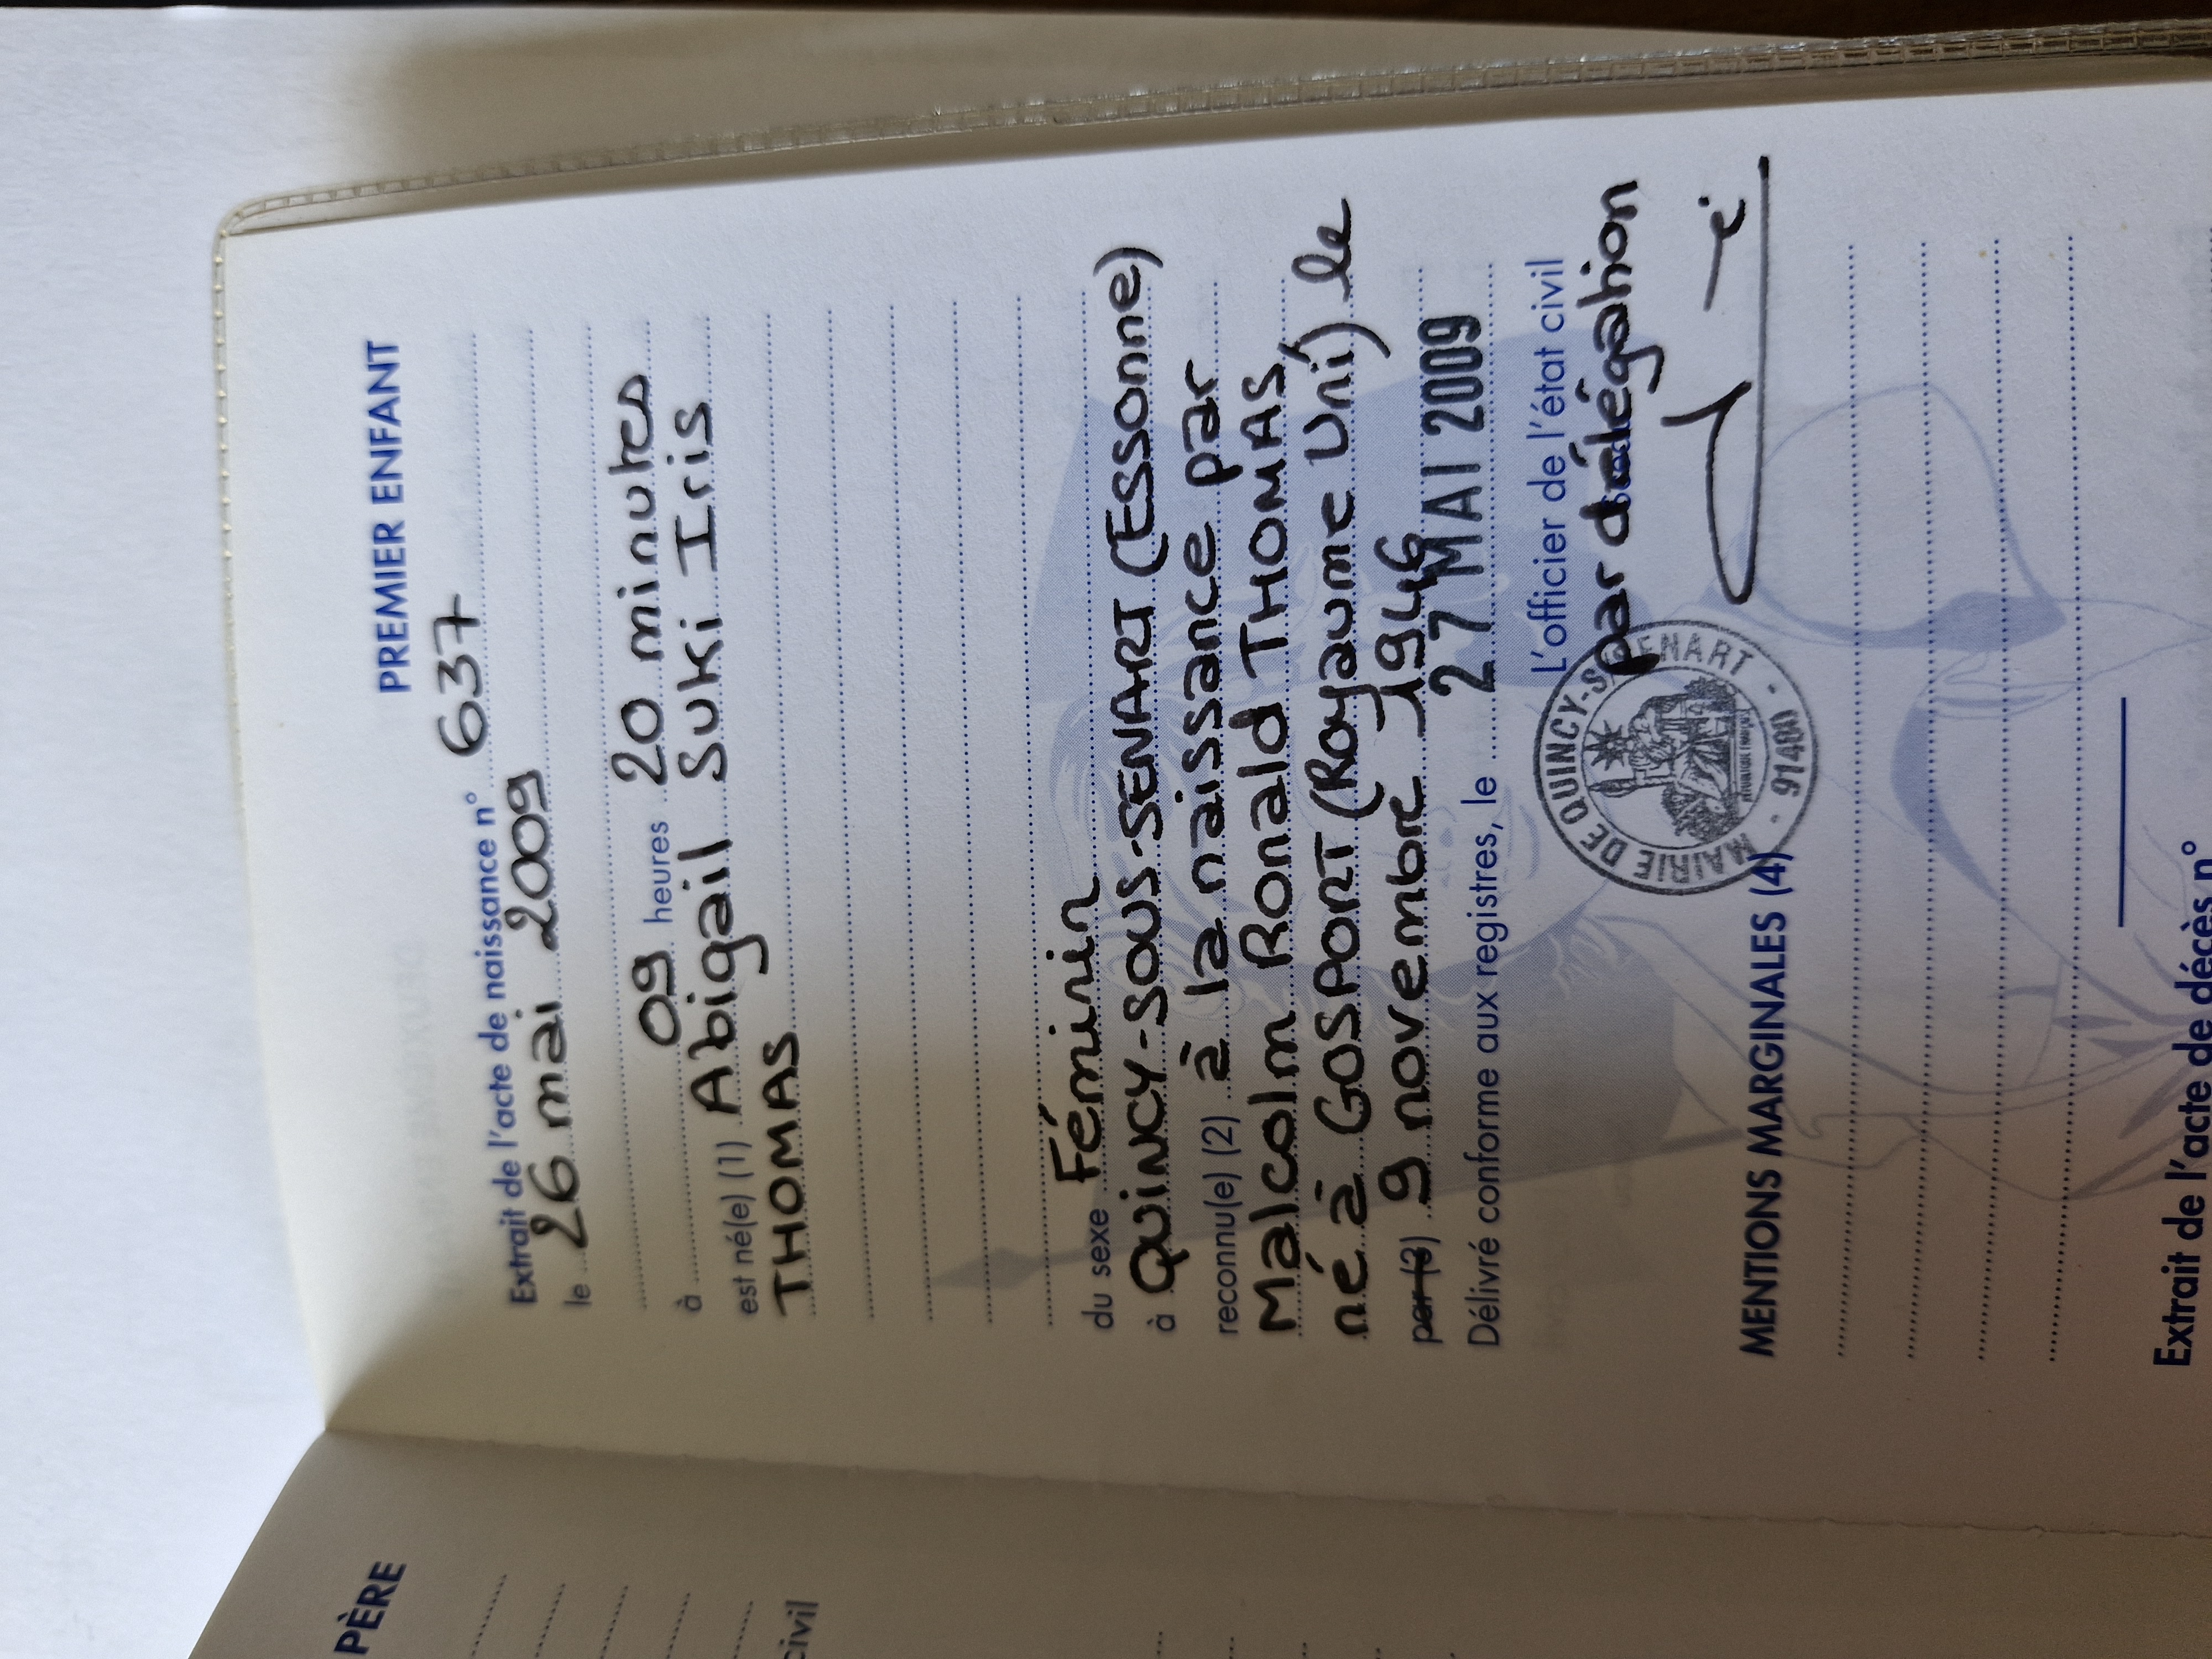 PREMIER ENFANT
Extrait de l'acte de naissance n° 637
le 26 mai 2009
à 09 heures 20 minutes
est né(e) (1) Abigail Suki Iris
THOMAS
du sexe Féminin
à QUINCY-SOUS-SENART (Essonne)
reconnu(e) (2) à la naissance par
Malcolm Ronald THOMAS
né à GOSPORT (Royaume Uni) le
par (3) 9 novembre 1946
Délivré conforme aux registres, le 27 MAI 2009
L'officier de l'état civil
par délégation
MAIRIE DE QUINCY-S/SENART - 91480 -
MENTIONS MARGINALES (4)
Extrait de l'acte de décès n°
PÈRE
civil